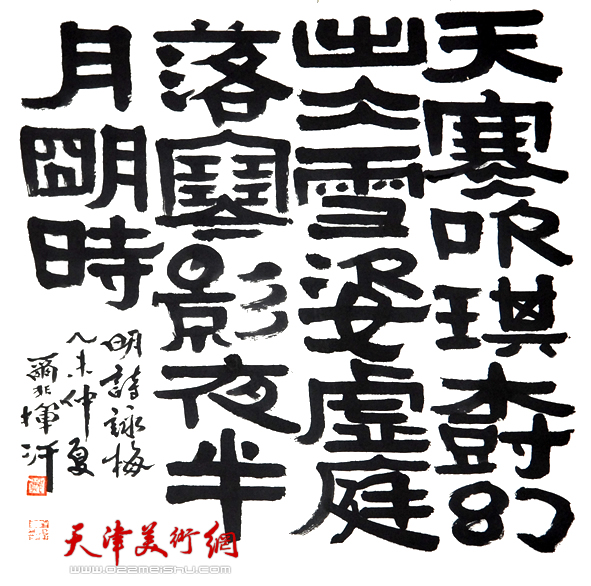 天寒吹琪樹幻
出仌雪姿虛庭
落寒影夜半
月朙時
明詩詠梅
乙未仲夏
爾非揮汗
天津美術網
www.022meishu.com